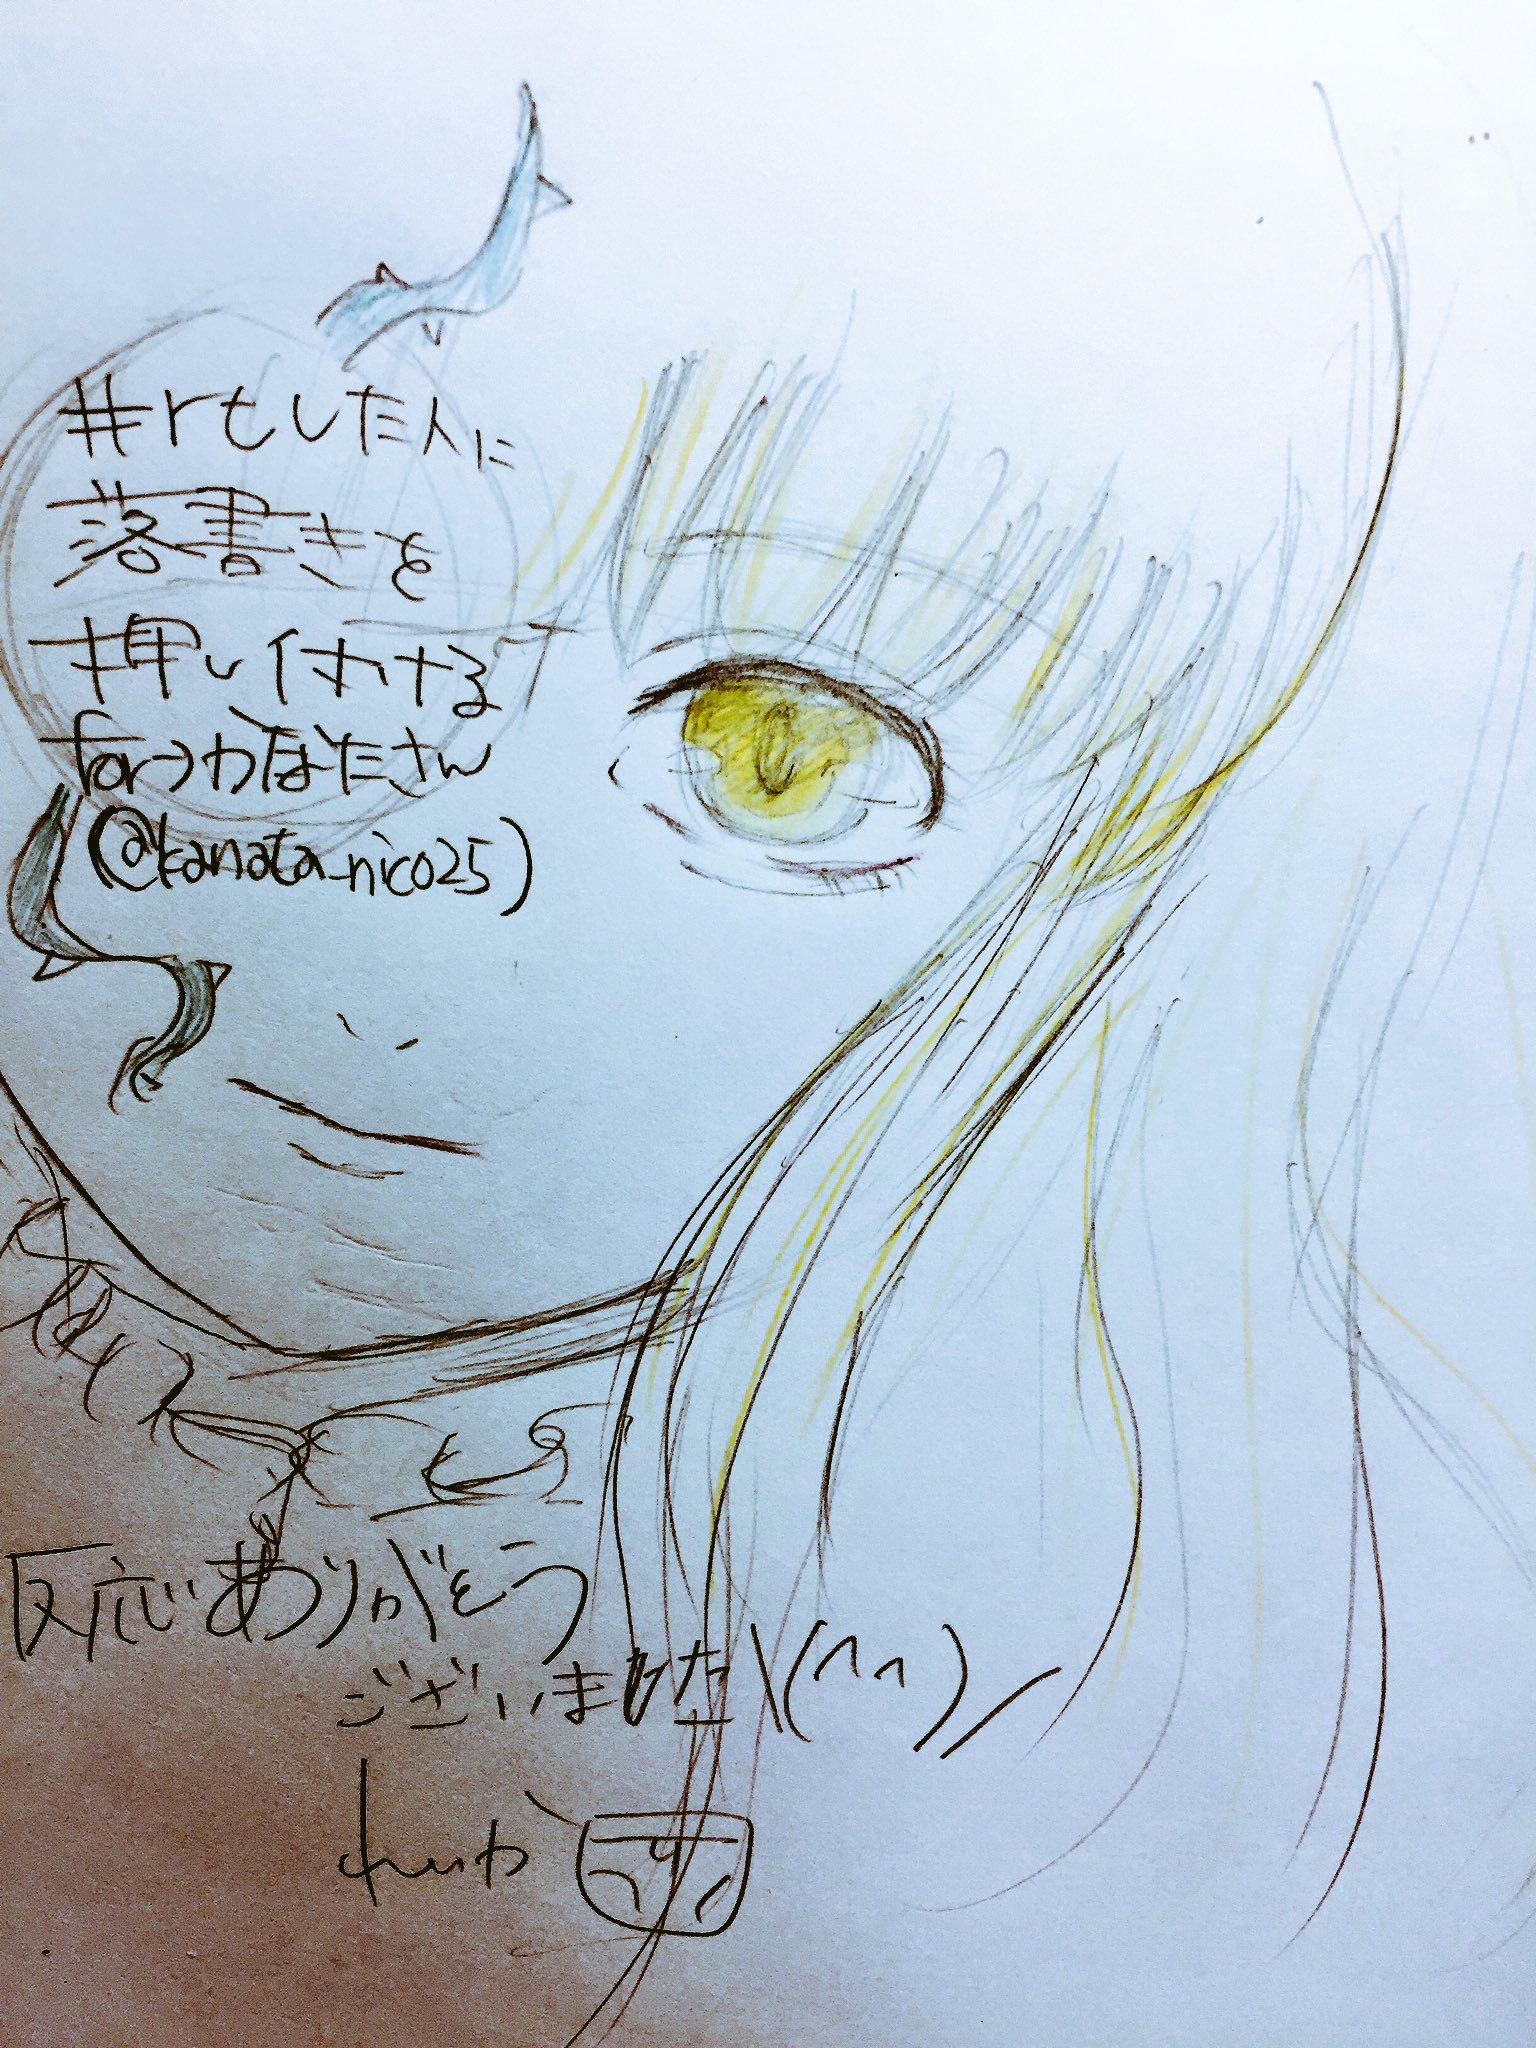 #rtした人に
落書きを
押し付ける
for→かぼたさん
(@kanata_nico25)
反応ありがとう
ございました\(^^)/
れいか